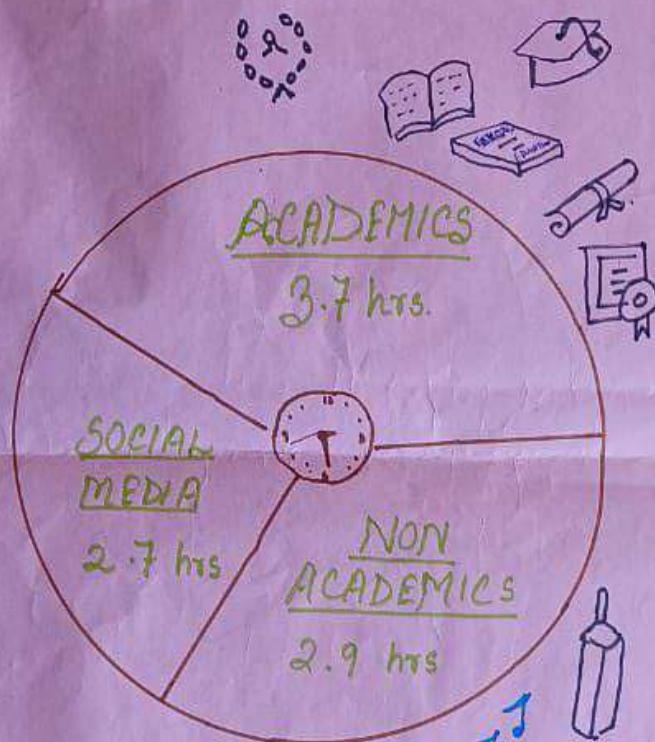 ACADEMICS
3.7 hrs.
SOCIAL
MEDIA
2.7 hrs
NON
ACADEMICS
2.9 hrs